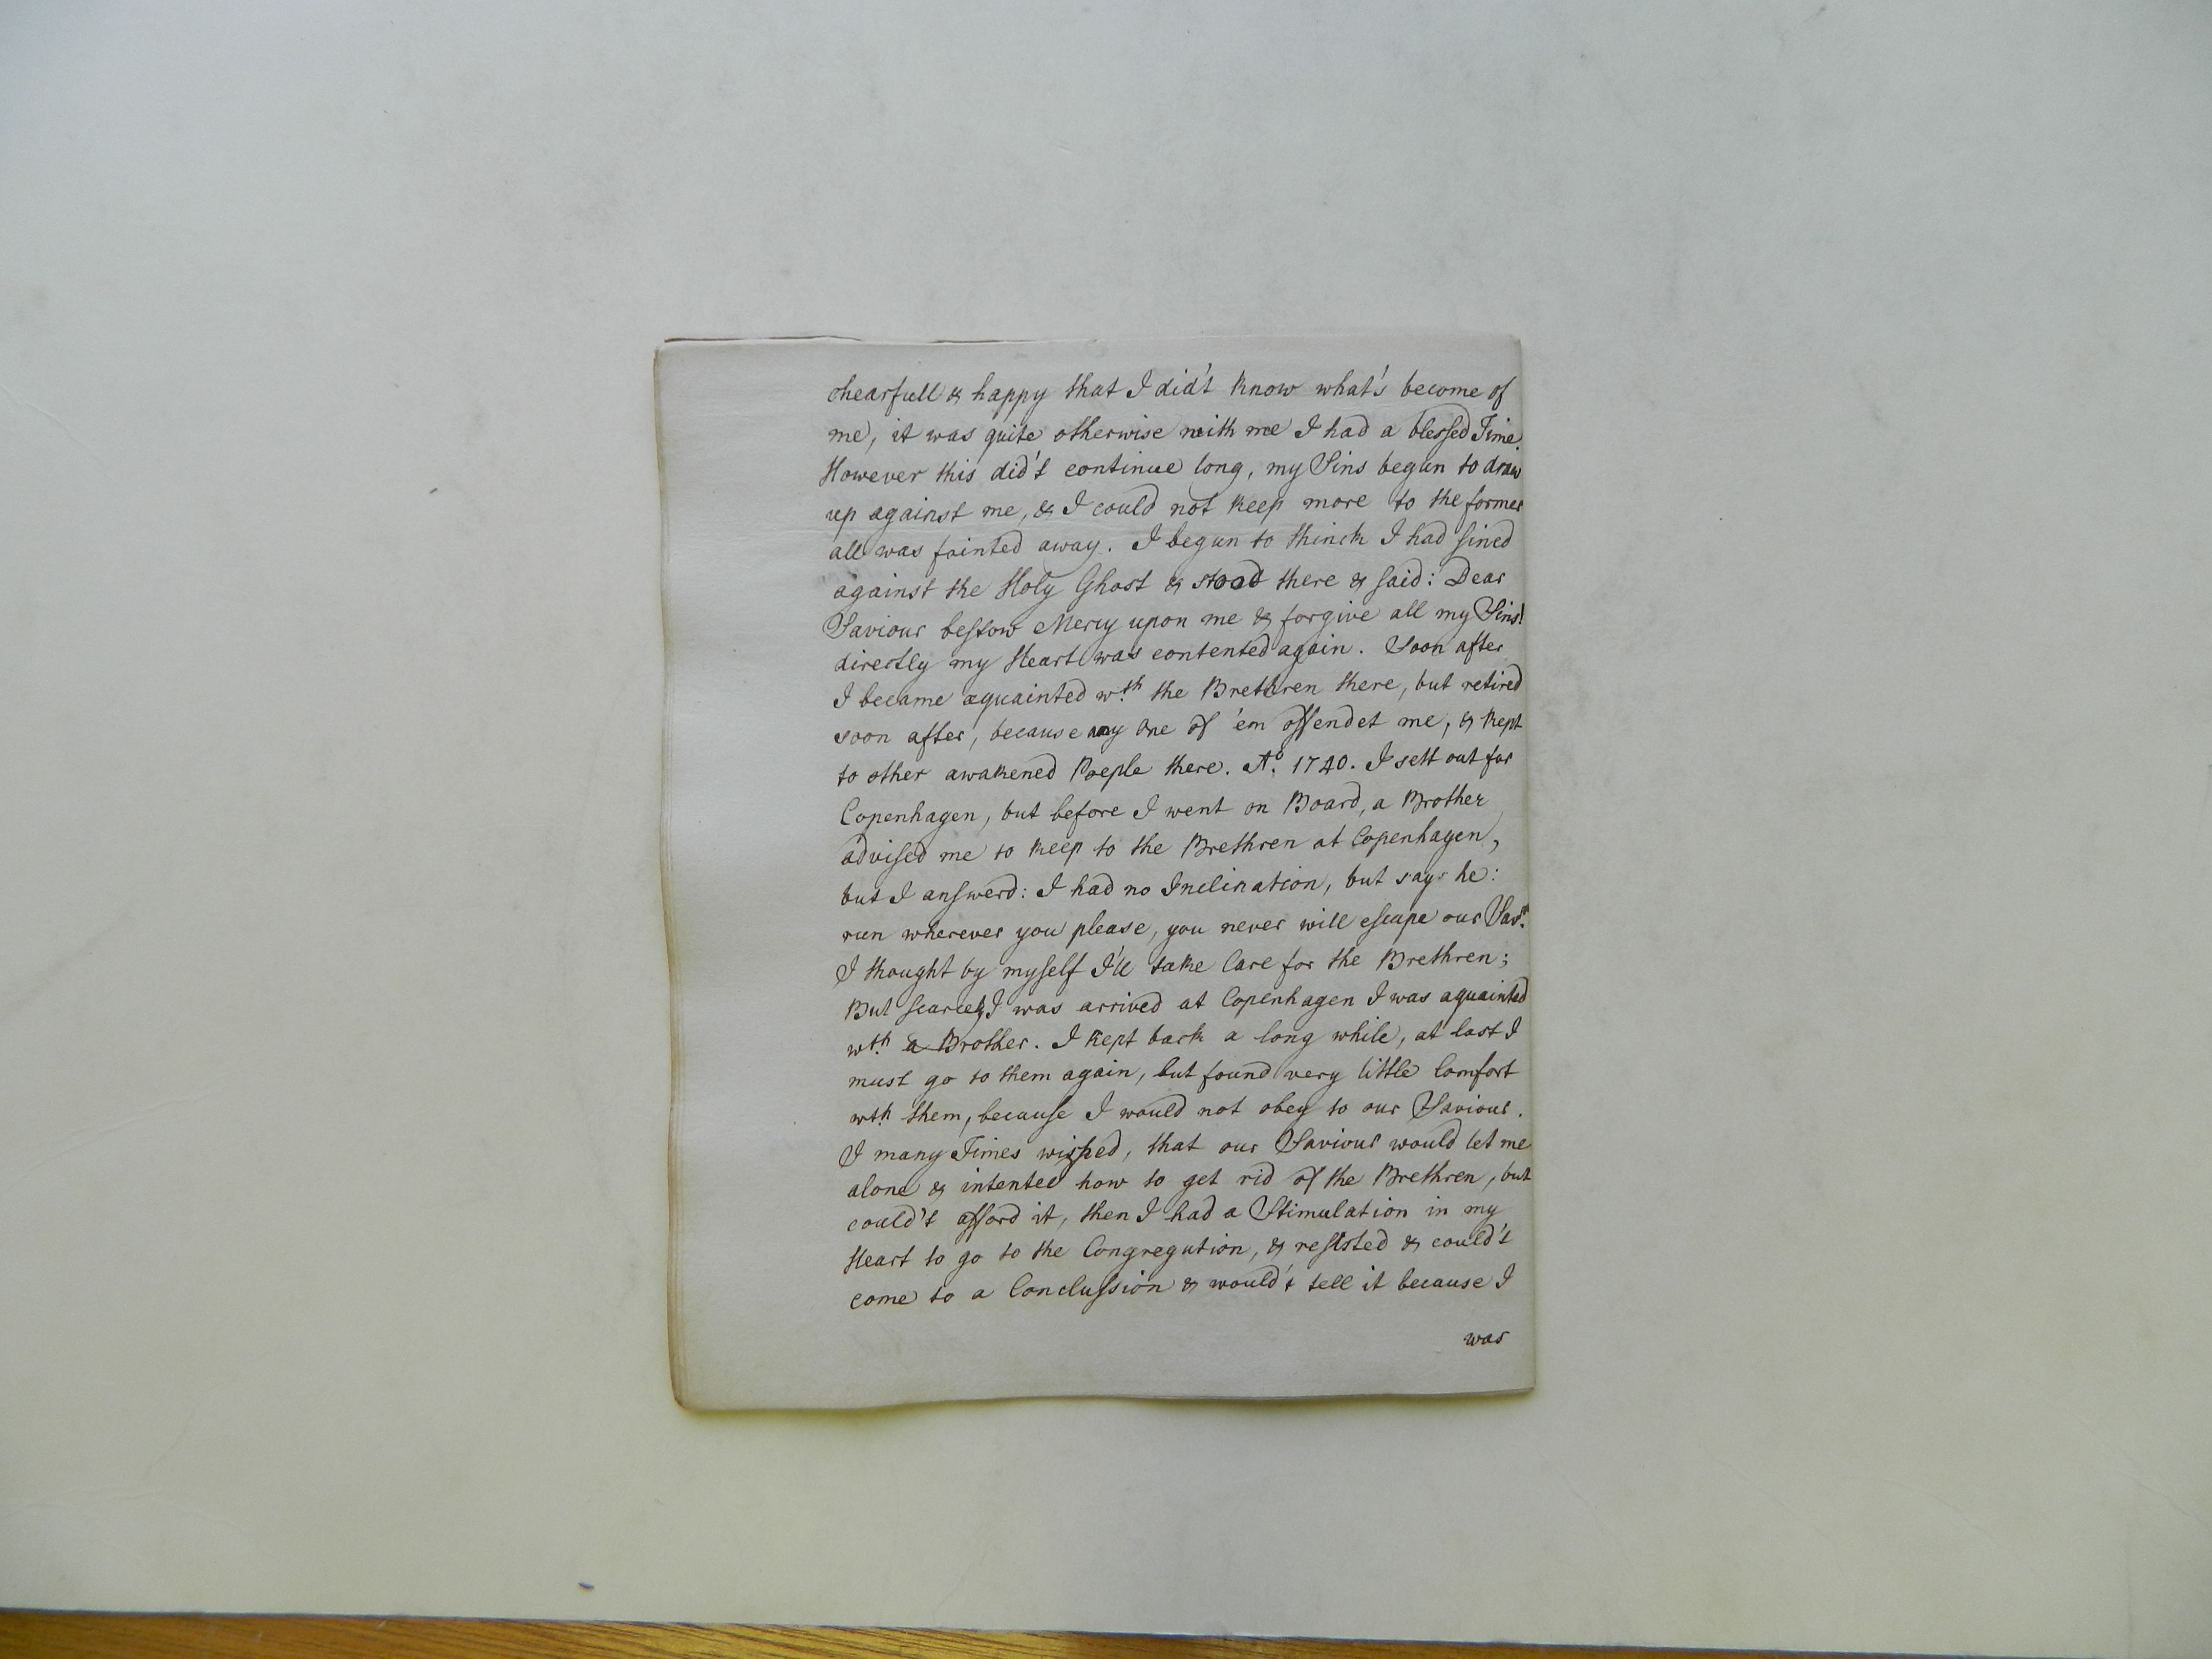 chearfull & happy that I did't know what's become of
me, it was quite otherwise with me I had a blessed Time.
However this did't continue long, my Sins begun to draw
up against me, & I could not keep more to the former
all was fainted away. I begun to thinck I had sined
against the Holy Ghost & stood there & said: Dear
Saviour bestow Mercy upon me & forgive all my Sins!
directly my Heart was contented again. Soon after
I became aquainted wth. the Brethren there, but retired
soon after, because any One of 'em offendet me, & kept
to other awakened Poeple there. Ao. 1740. I sett out for
Copenhagen, but before I went on Board, a Brother
advised me to keep to the Brethren at Copenhagen,
but I answerd: I had no Inclination, but says he:
run wherever you please, you never will escape our Savr.
I thought by myself I'll take Care for the Brethren;
But scarcely I was arrived at Copenhagen I was aquainted
wth. a Brother. I kept back a long while, at last I
must go to them again, but found very little Comfort
wth. them, because I would not obey to our Saviour.
I many Times wished, that our Saviour would let me
alone & intented how to get rid of the Brethren, but
could't afford it, then I had a Stimulation in my
Heart to go to the Congregation, & resisted & could't
come to a Conclussion & would't tell it because I
was